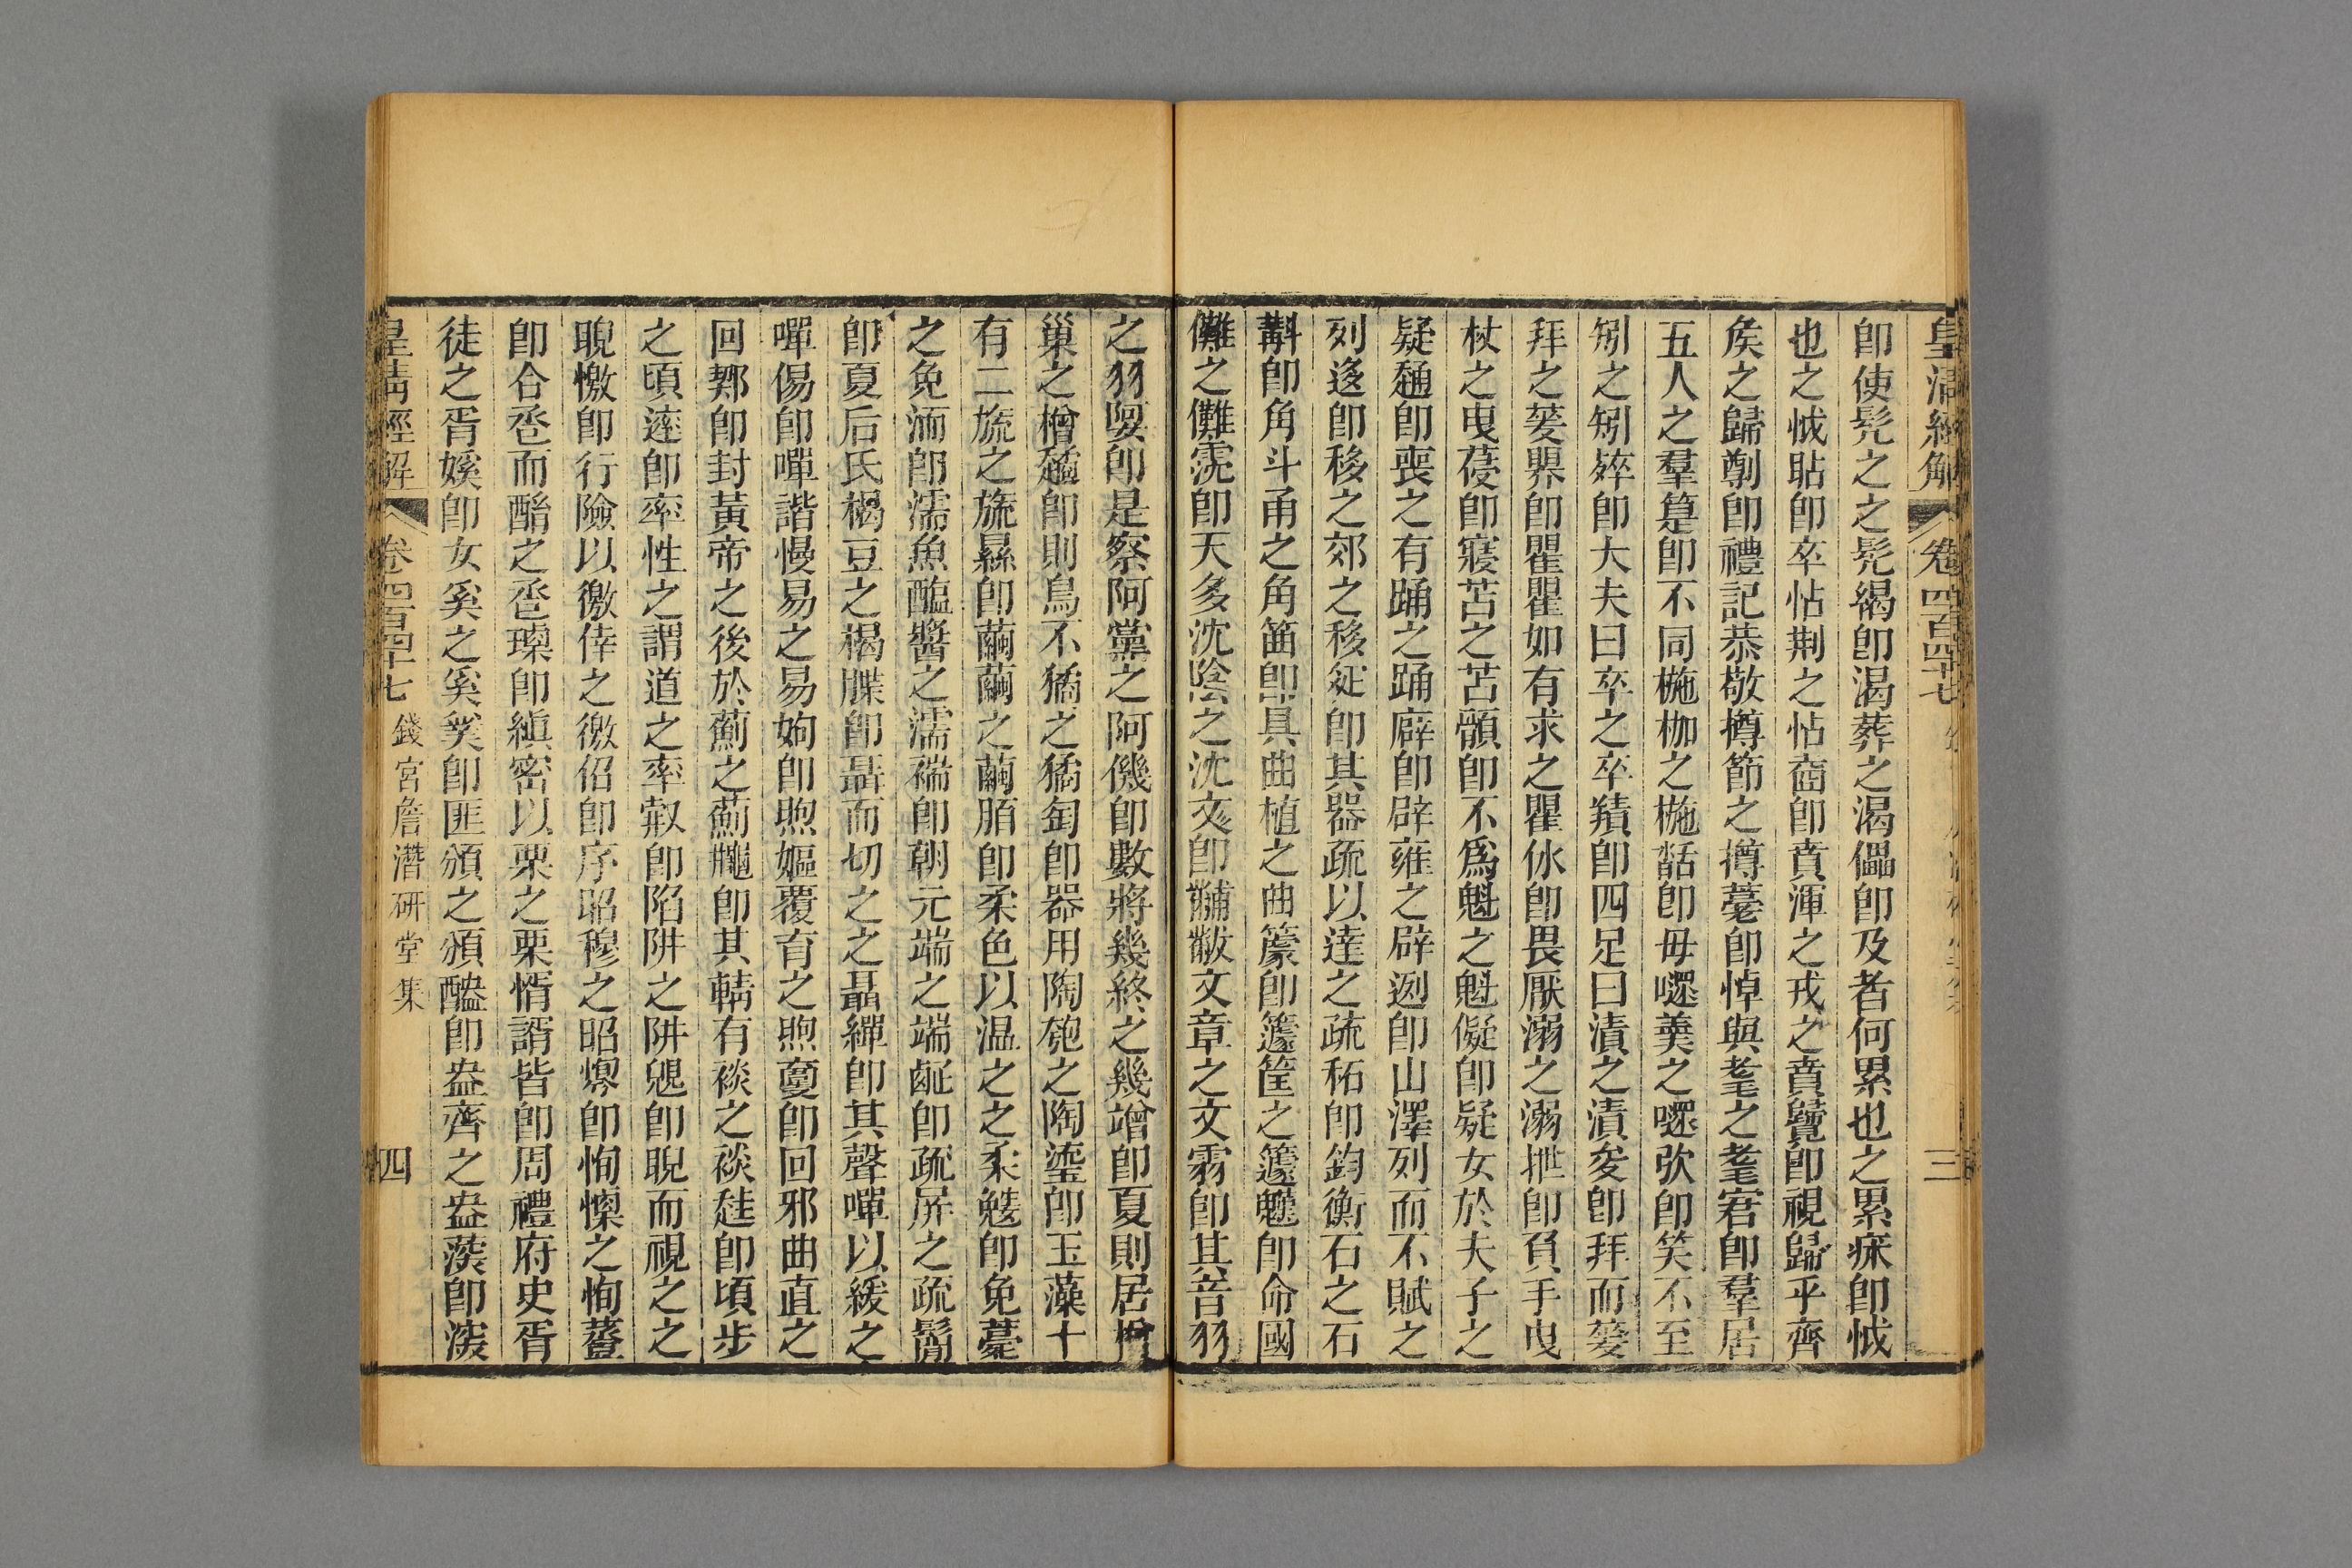 皇清經解 卷四百四十七 三
卽使髠之之髠䅥卽渴葬之渴儡卽及者何累也之累㾜卽怴
也之怴貼卽卒怗荆之怗𪗨卽賁渾之戎之賁覽卽視歸乎齊
矦之歸劕卽禮記恭敬撙節之撙薹卽悼與耄之耄宭卽羣居
五人之羣䈕卽不同椸枷之椸䑛卽毋嚃羹之嚃弞卽笑不至
矧之矧䘹卽大夫曰卒之卒㱴卽四足曰漬之漬夎卽拜而蓌
拜之蓌䀠卽瞿瞿如有求之瞿㲻卽畏厭溺之溺抴卽負手曳
杖之曳葠卽寢苫之苫顝卽不爲魁之魁儗卽疑女於夫子之
疑䞶卽喪之有踊之踊廦卽辟雍之辟迾卽山澤列而不賦之
列迻卽移之郊之移延卽其器疏以達之疏䄷卽鈞衡石之石
斠卽角斗甬之角笛卽具曲植之曲䉛卽籧筐之籧魕卽命國
儺之儺霃卽天多沈陰之沈㢧卽黼黻文章之文䨒卽其音羽
之羽㖠卽是察阿黨之阿僟卽數將幾終之幾竲卽夏則居檜
巢之橧趫卽則鳥不獝之獝匋卽器用陶匏之陶瑬卽玉藻十
有二旒之旒㬎卽繭繭之繭腬卽柔色以温之之柔䰰卽免薧
之免洏卽濡魚醢醬之濡褍卽朝元端之端䟽卽疏屏之疏鬜
卽夏后氏楬豆之楬牒卽聶而切之之聶繟卽其聲嘽以緩之
嘽傷卽嘽諧慢易之易姁卽煦嫗覆育之之煦㚆卽回邪曲直之
回鄷卽封黃帝之後於薊之薊䵷卽其輤有裧之裧䞨卽頃步
之頃䢦卽率性之謂道之率㪉卽陷阱之阱覞卽睨而視之之
睨憿卽行險以徼倖之徼佋卽序昭穆之昭㷠卽恂慄之恂䕪
卽合卺而酳之卺瑮卽縝密以栗之栗惰諝皆卽周禮府史胥
徒之胥㜎卽女奚之奚䉪卽匪頒之頒醠卽盎齊之盎蒺卽湊
皇清經解 卷四百四十七 錢宮詹潛研堂集 四